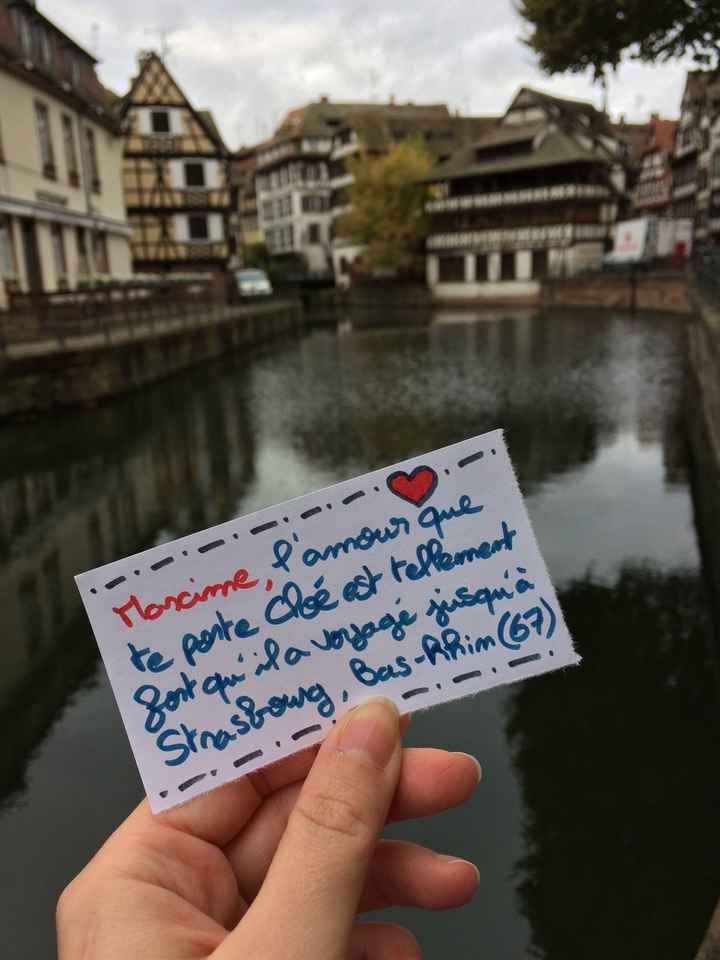 Maxime, l'amour que
te porte Cloé est tellement
fort qu'il a voyagé jusqu'à
Strasbourg, Bas-Rhin (67)